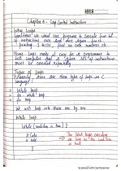 Chapter 6 - Loop Control Instruction
Why Loops
Sometimes we want our programs to execute few set
of instructions over and over again for ex.
printing 1 to 100, first 100 even numbers etc.
Hence loops make it easy for a programmer to
tell computer that a given set of instructions
must be executed repeatedly.
Types of Loops
there are three types of loops in C
language:
1. While loop
2. do-while loop
3. for loop
We will look into these one by one.
While Loop
While (condition is true) {
// Code
// Code
}